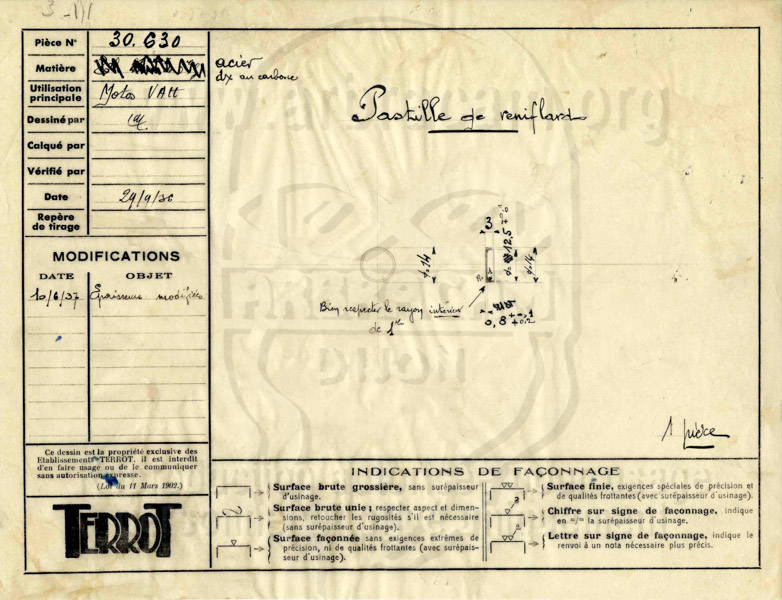 Pièce N° 30.630
Matière
acier
dx au carbone
Utilisation
principale Motos VAtt
Dessiné par
Calqué par
Vérifié par
Date 29/9/36
Repère
de tirage
Pastille de reniflard
MODIFICATIONS
DATE OBJET
10/6/37 Épaisseurs modifiées
3
d. 14
d. 12,5
d. 14
Bien respecter le rayon intérieur
de 1
0,8
1 pièce
Ce dessin est la propriété exclusive des
Etablissements TERROT, il est interdit
d'en faire usage ou de le communiquer
sans autorisation expresse.
(Loi du 11 Mars 1902.)
TERROT
INDICATIONS DE FAÇONNAGE
Surface brute grossière, sans surépaisseur
d'usinage.
Surface brute unie; respecter aspect et dimen-
sions, retoucher les rugosités s'il est nécessaire
(sans surépaisseur d'usinage).
Surface façonnée sans exigences extrêmes de
précision, ni de qualités frottantes (avec surépais-
seur d'usinage).
Surface finie, exigences spéciales de précision et
de qualités frottantes (avec surépaisseur d'usinage).
Chiffre sur signe de faconnage, indique
en =/= la surépaisseur d'usinage.
Lettre sur signe de façonnage, indique le
renvoi à un nota nécessaire plus précis.